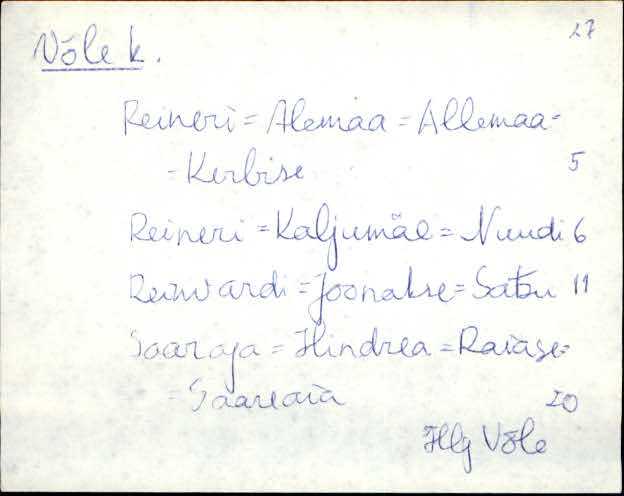 27
Võle k.
Reineri = Alemaa = Allemaa =
= Kerbise 5
Reineri = Kaljumäe = Nuudi 6
Reinvardi = Joonakse = Satsu 11
Saaraja = Hindrea = Raiase =
= Saareaia 20
Hlg Võle